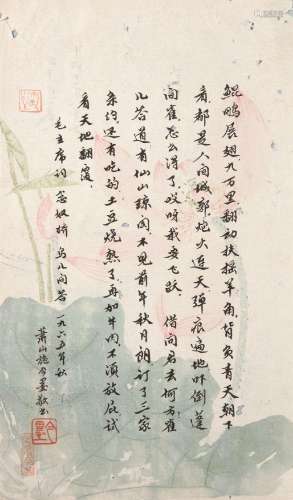 鲲鹏展翅九万里翻动扶摇羊角背负青天朝下
看都是人间城郭炮火连天弹痕遍地吓倒蓬
间雀怎么得了哎呀我要飞跃 借问君去何方雀
儿答道有仙山琼阁不见前年秋月朗订了三家
条约还有吃的土豆烧熟了再加牛肉不须放屁试
看天地翻覆
毛主席词 念奴娇 鸟儿问答 一九六五年秋
萧山施今墨敬书